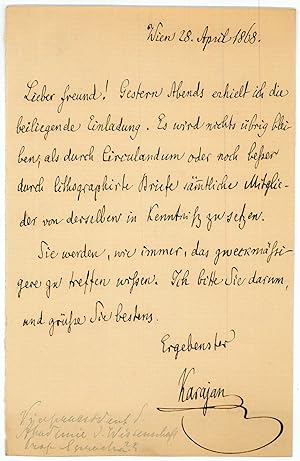 Wien 28. April 1868.
Lieber Freund! Gestern Abends erhielt ich die
beiliegende Einladung. Es wird nichts übrig blei-
ben, als durch Circulandum oder noch beßer
durch lithographirte Briefe sämmtliche Mitglie-
der von derselben in Kenntniß zu setzen.
Sie werden, wie immer, das zweckmäßi-
gere zu treffen wißen. Ich bitte Sie darum,
und grüße Sie bestens.
Ergebenster
Karajan
Vicepraesident d.
Akademie d. Wissenschaft